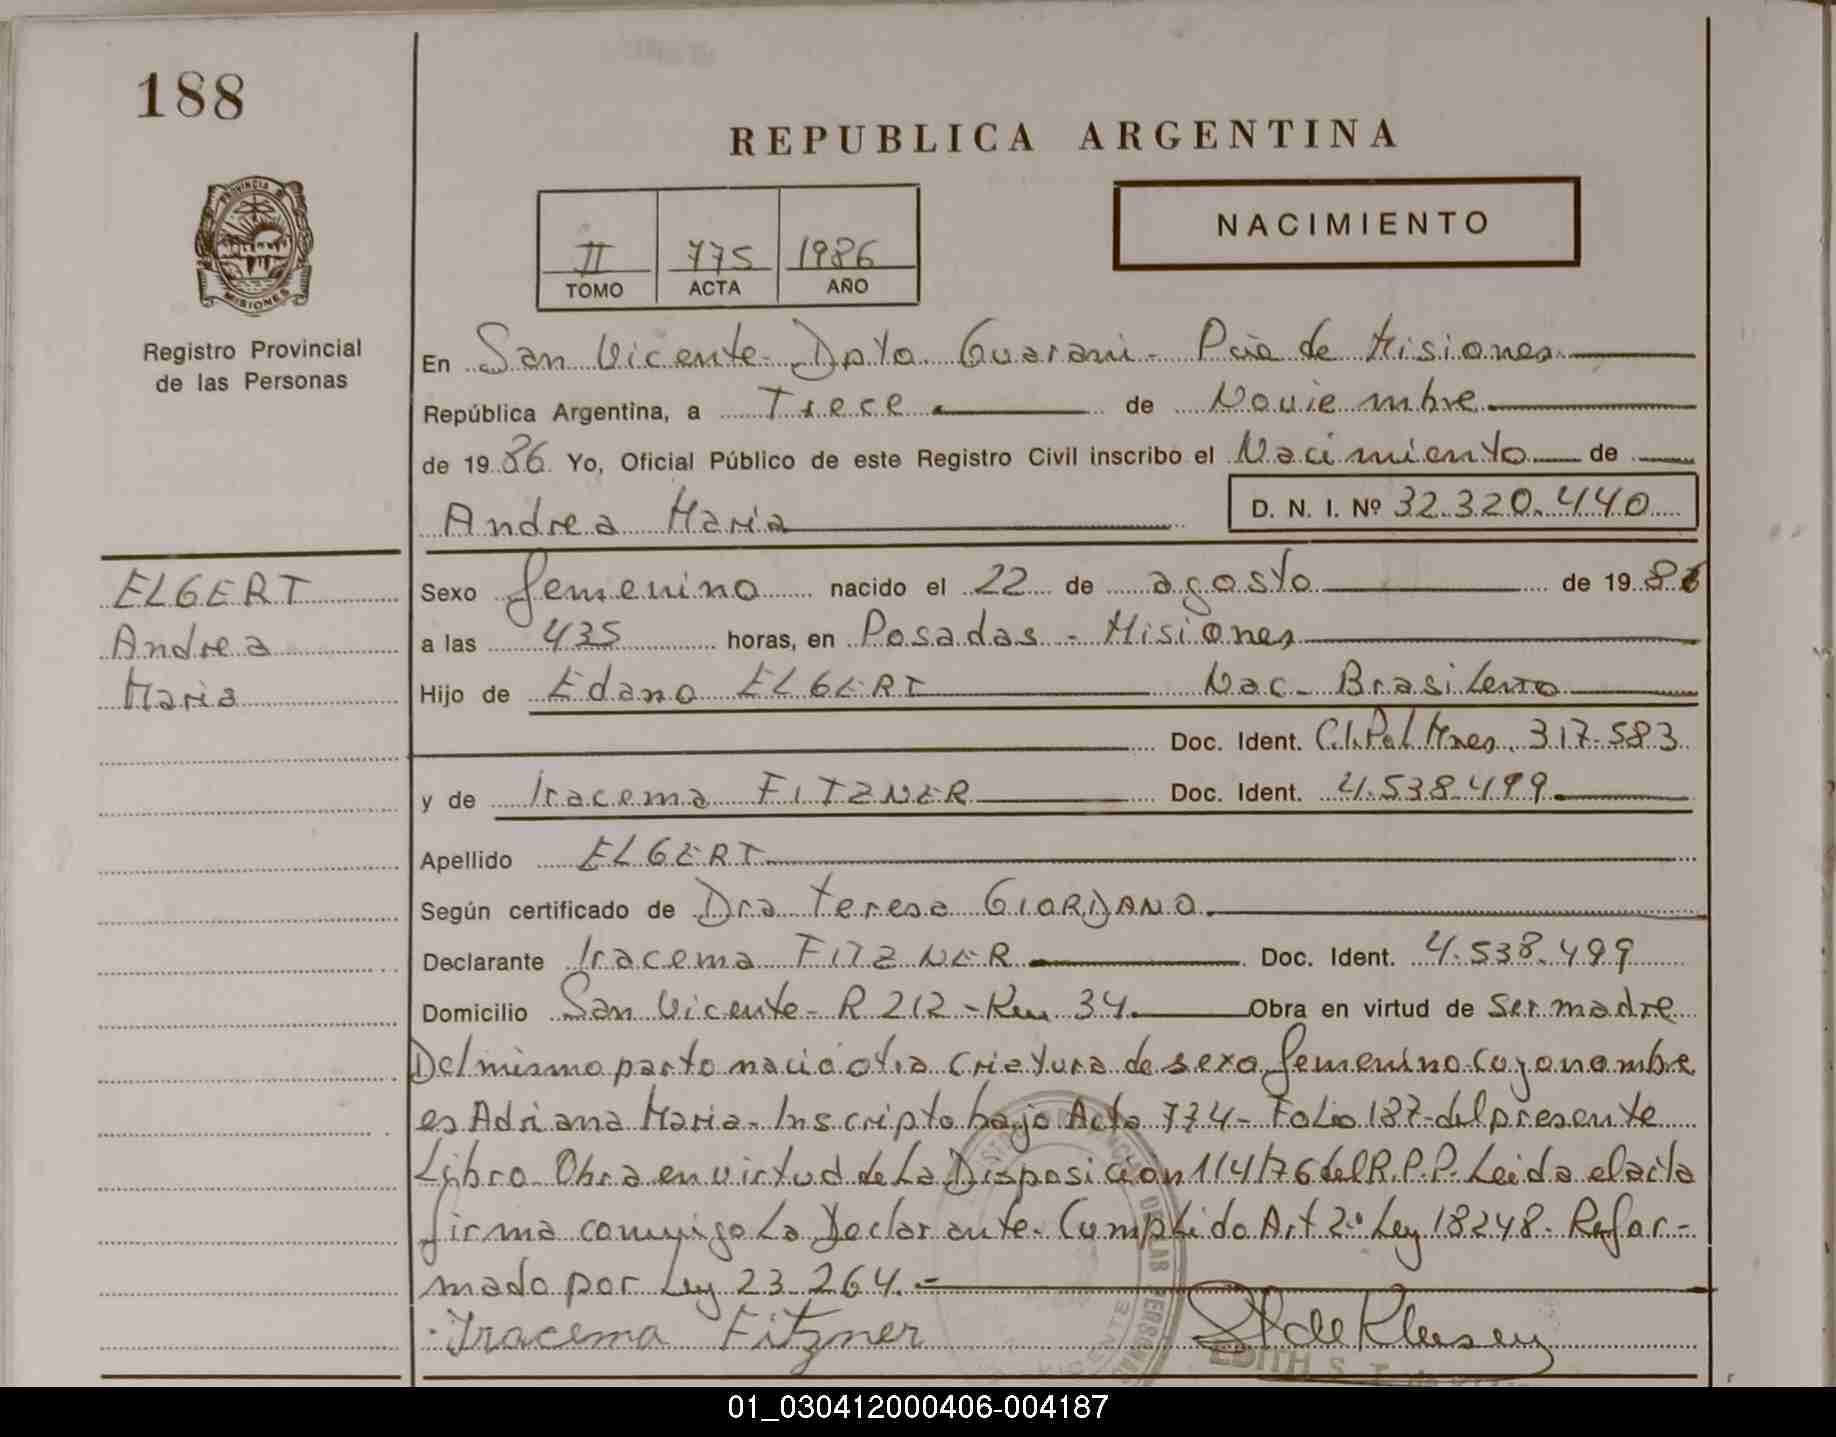 188
REPUBLICA ARGENTINA
NACIMIENTO
II 775 1986
TOMO ACTA AÑO
PROVINCIA DE
MISIONES
Registro Provincial
de las Personas
En San Vicente - Dpto Guarani - Pcia de Misiones
República Argentina, a Trece de Noviembre
de 1986 Yo, Oficial Público de este Registro Civil inscribo el Nacimiento de
Andrea Maria D. N. I. Nº 32.320.440
ELGERT
Andrea
Maria
Sexo femenino nacido el 22 de agosto de 1986
a las 435 horas, en Posadas - Misiones
Hijo de Edano ELGERT Nac - Brasilero
Doc. Ident. C.I. Pol Mnes. 317.583
y de Iracema FITZNER Doc. Ident. 4.538.499
Apellido ELGERT
Según certificado de Dra Teresa GIORDANO.
Declarante Iracema FITZNER Doc. Ident. 4.538.499
Domicilio San Vicente - R 212 - Km 34. Obra en virtud de Ser madre
Del mismo parto nació otra criatura de sexo femenino cuyo nombre
es Adriana Maria - Inscripto bajo Acta 774 - Folio 187 - del presente
Libro - Obra en virtud de La Disposicion 114/76 del R.P.P. Leida el acta
firma conmigo La Declarante. Cumplido Art 2º Ley 18248 - Refor-
mado por Ley 23.264. -
Iracema Fitzner
EDITH S. T. de
01_030412000406-004187